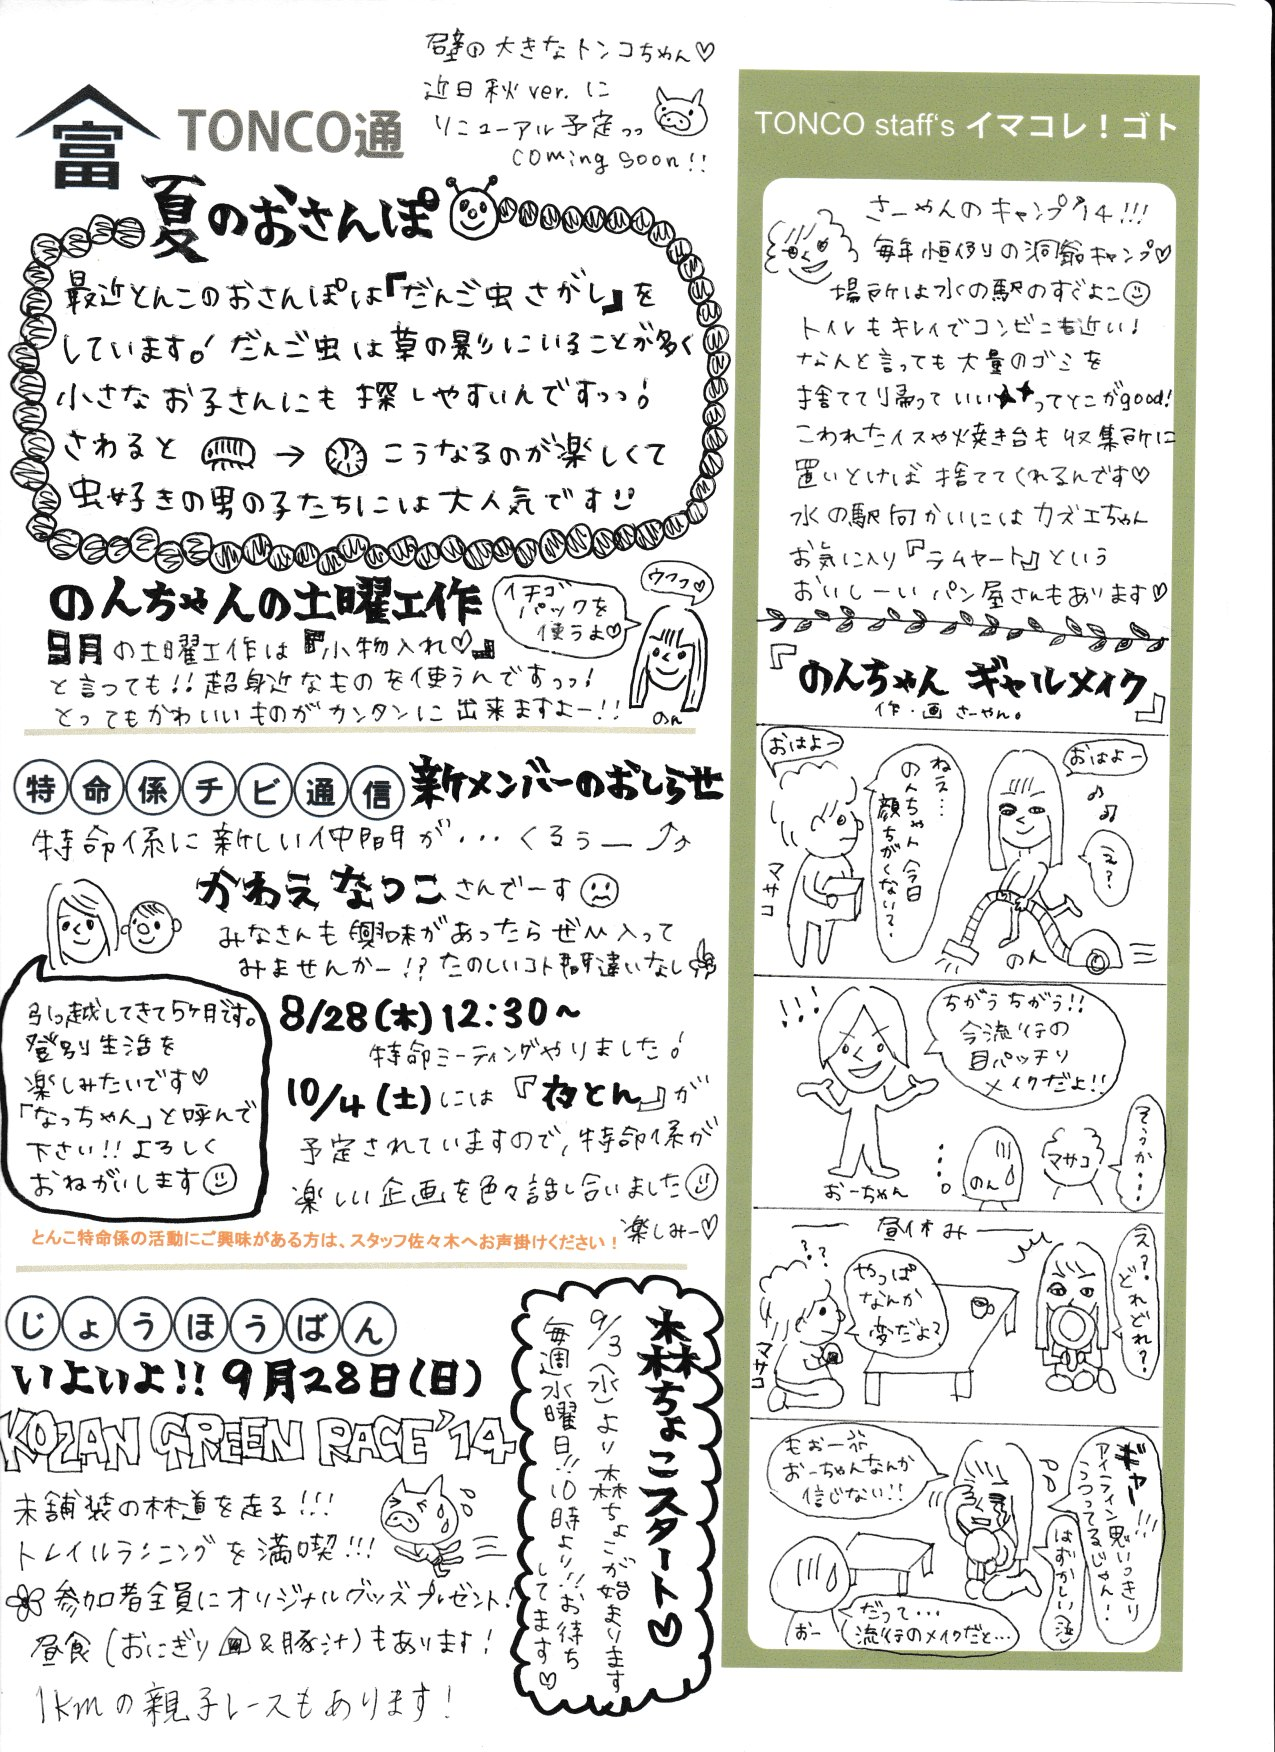 壁の大きなトンコちゃん♡
近日秋ver.に
リニューアル予定っっ
coming soon!!
富
TONCO通
夏のおさんぽ
最近とんこのおさんぽは『だんご虫さがし』を
しています! だんご虫は草の影にいることが多く
小さなお子さんにも探しやすいんですっっ!
さわると → こうなるのが楽しくて
虫好きの男の子たちには大人気です
のんちゃんの土曜工作
イチゴ
パックを
使うよ♡
ウフフ♡
9月の土曜工作は『小物入れ♡』
と言っても!!超身近なものを使うんですっっ!
とってもかわいいものがカンタンに出来ますよー!!
のん
特命係チビ通信 新メンバーのおしらせ
特命係に新しい仲間が・・・くるぅー
かわえ なつこさんでーす
みなさんも興味があったらぜひ入って
みませんかー!?たのしいコト間違いなし
引っ越してきて5ヶ月です。
登別生活を
楽しみたいです♡
「なっちゃん」と呼んで
下さい!!よろしく
おねがいします
8/28(木)12:30~
特命ミーティングやりました!
10/4(土)には『夜とん』が
予定されていますので、特命係が
楽しい企画を色々話し合いました
楽しみー♡
とんこ特命係の活動にご興味がある方は、スタッフ佐々木へお声掛けください!
じょうほうばん
いよいよ!!9月28日(日)
KOZAN GREEN RACE'14
未舗装の林道を走る!!!
トレイルランニングを満喫!!!
参加者全員にオリジナルグッズプレゼント!
昼食(おにぎり&豚汁)もあります!
1kmの親子レースもあります!
森ちょこスタート♡
9/3(水)より森ちょこが始まります
毎週水曜日!!10時より!!お待ち
してます♡
TONCO staff's イマコレ!ゴト
さーやんのキャンプ'14!!!
毎年恒例の洞爺キャンプ♡
場所は水の駅のすぐよこ
トイレもキレイでコンビニも近い!
なんと言っても大量のゴミを
捨ててり帰っていい★★ってとこがgood!
こわれたイスや焼き台も収集所に
置いとけば捨ててくれるんです♡
水の駅向かいにはカズエちゃん
お気に入り『ラムヤート』という
おいしーいパン屋さんもあります♡
『のんちゃん ギャルメイク』
作・画 さーやん。
おはよー
おはよー
ねぇ…
のんちゃん今日
顔ちがくない?
え?
マサコ
のん
!!!
ちがうちがう!!
今流行の
目パッチリ
メイクだよ!!
そうか・・・
マサコ
のん
おーちゃん
昼休み
??
やっぱ
なんか
変だよ?
え?
どれどれ?
マサコ
ギャー!!!
アイライン思いっきり
うつってるじゃん!
はずかしい(泣)
もぉー
おーちゃんなんか
信じない!!
おー
だって・・・
流行のメイクだと…